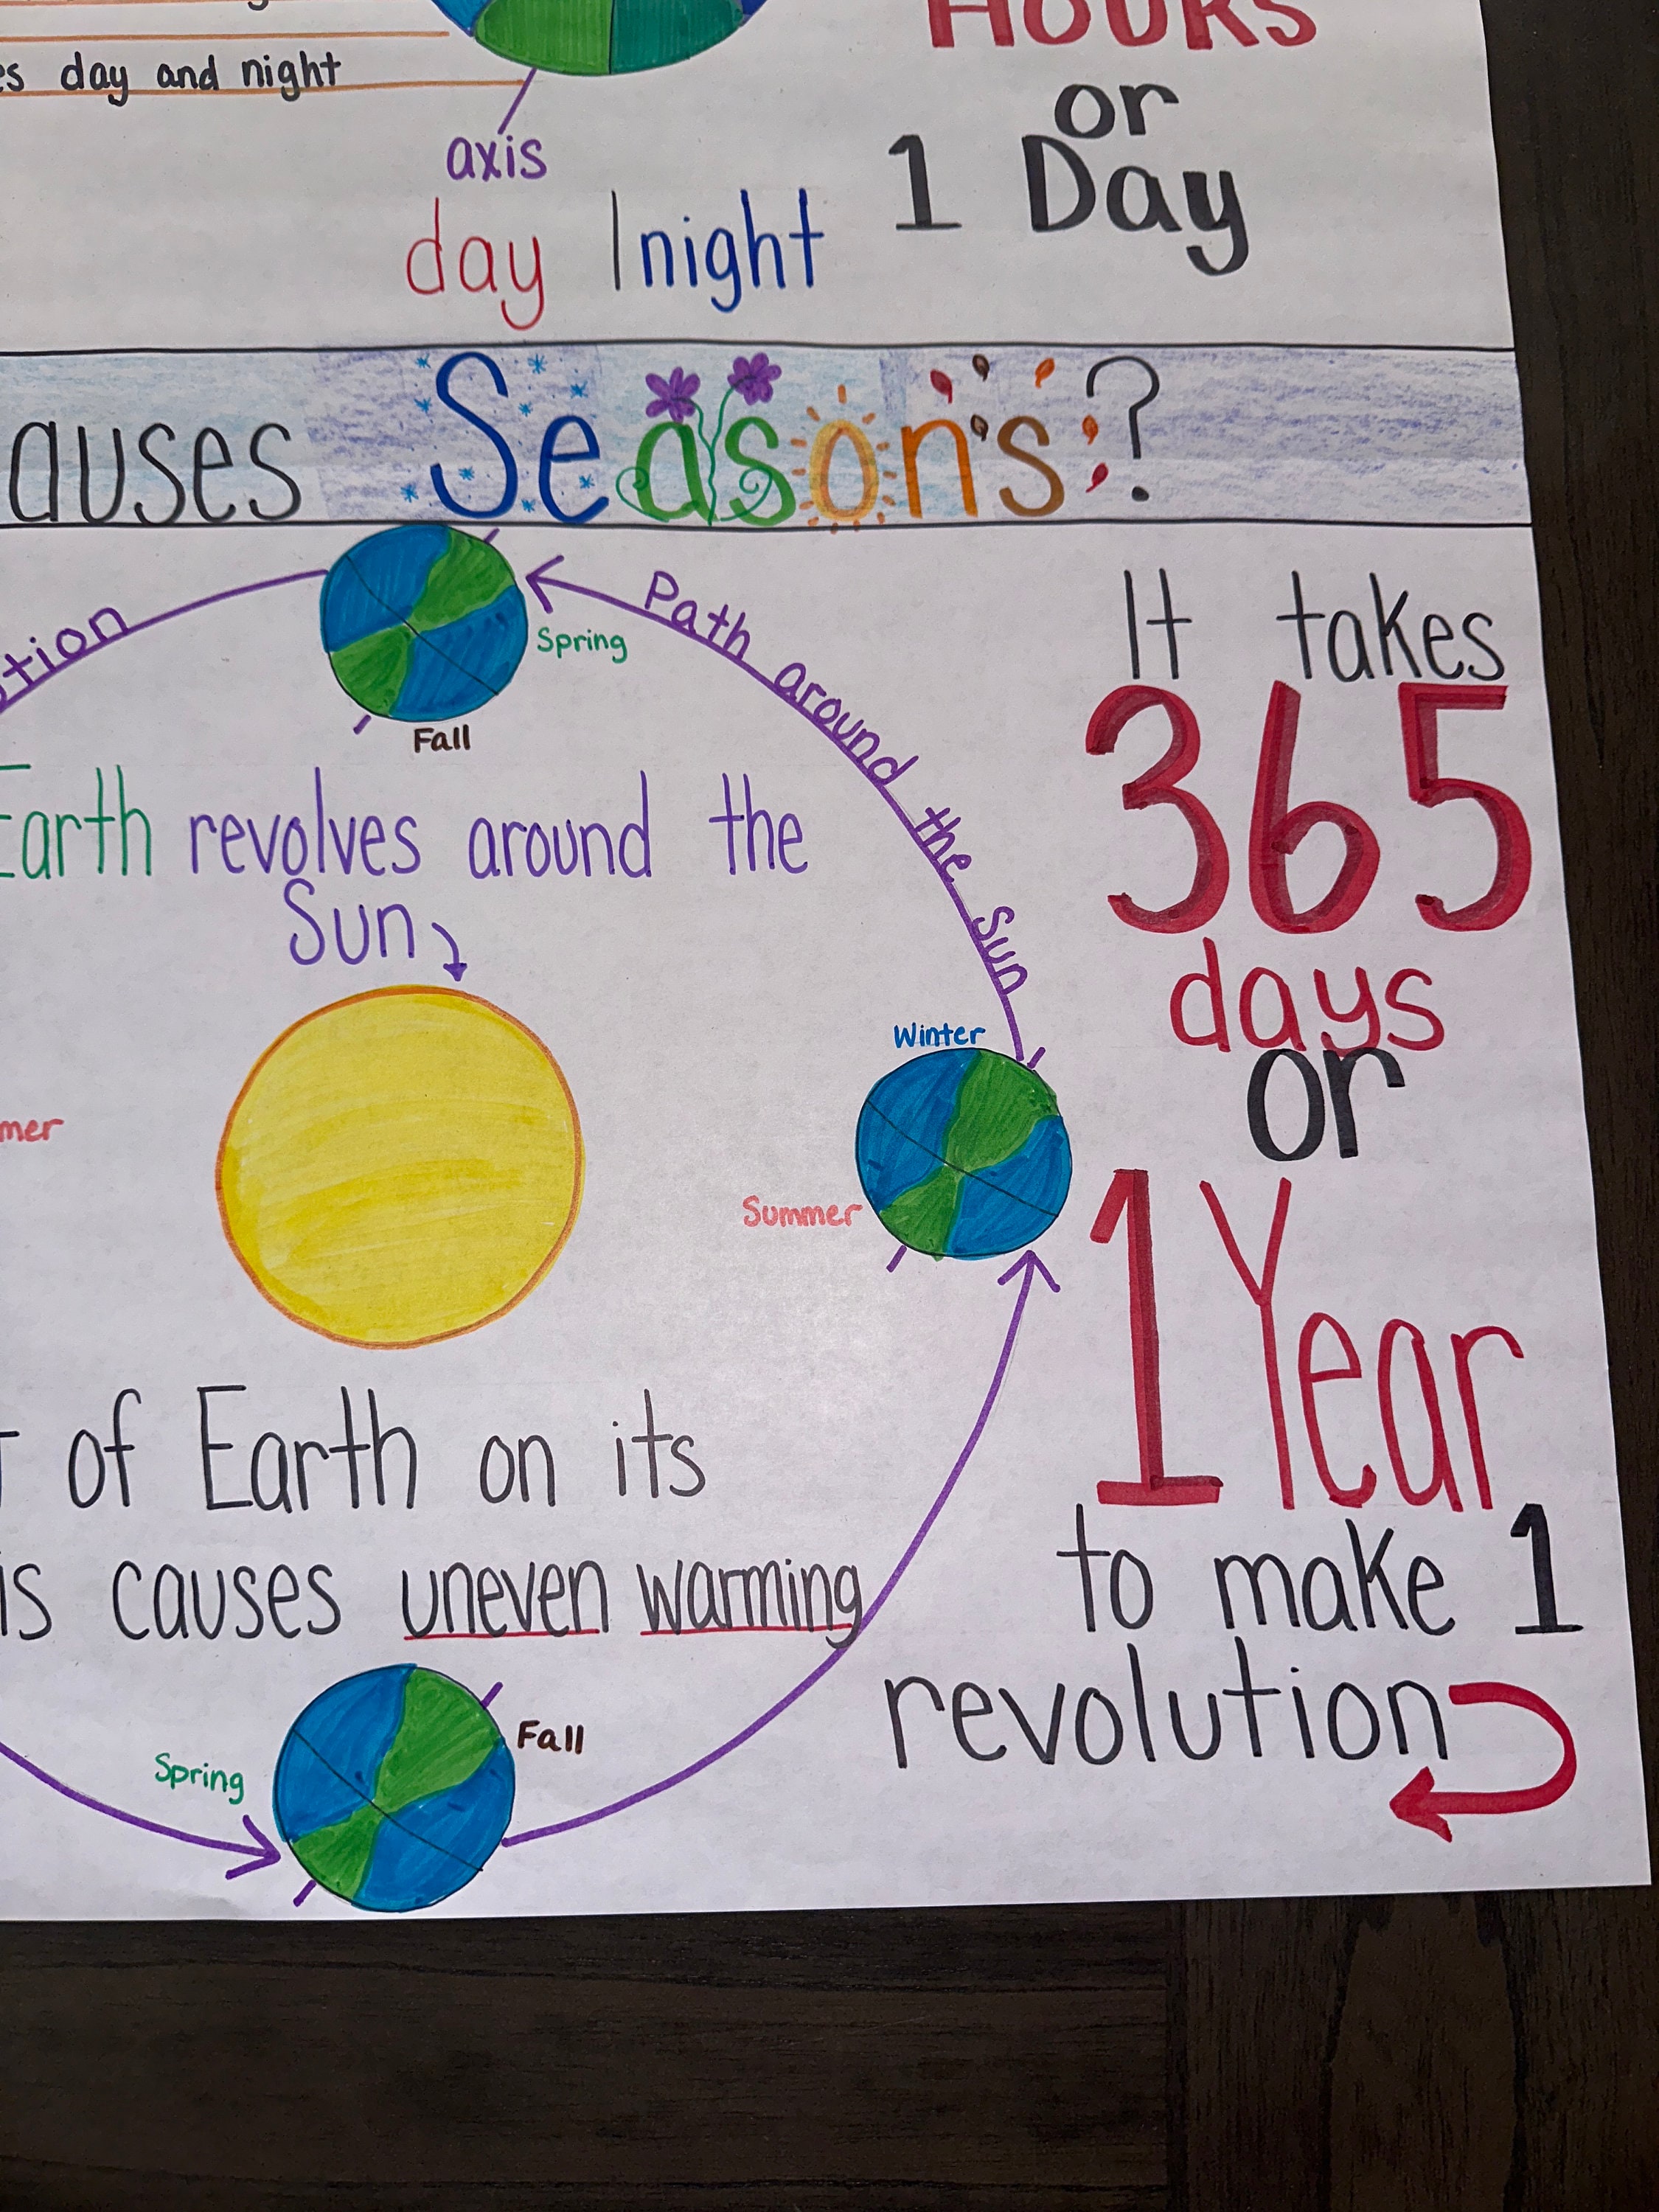 day and night
HOURS
or
1 Day
axis
day | night
auses Seasons?
tion
Path around the Sun
Spring
Fall
Earth revolves around the
Sun
Winter
Summer
mer
of Earth on its
is causes uneven warming
Spring
Fall
It takes
365
days
or
1 Year
to make 1
revolution